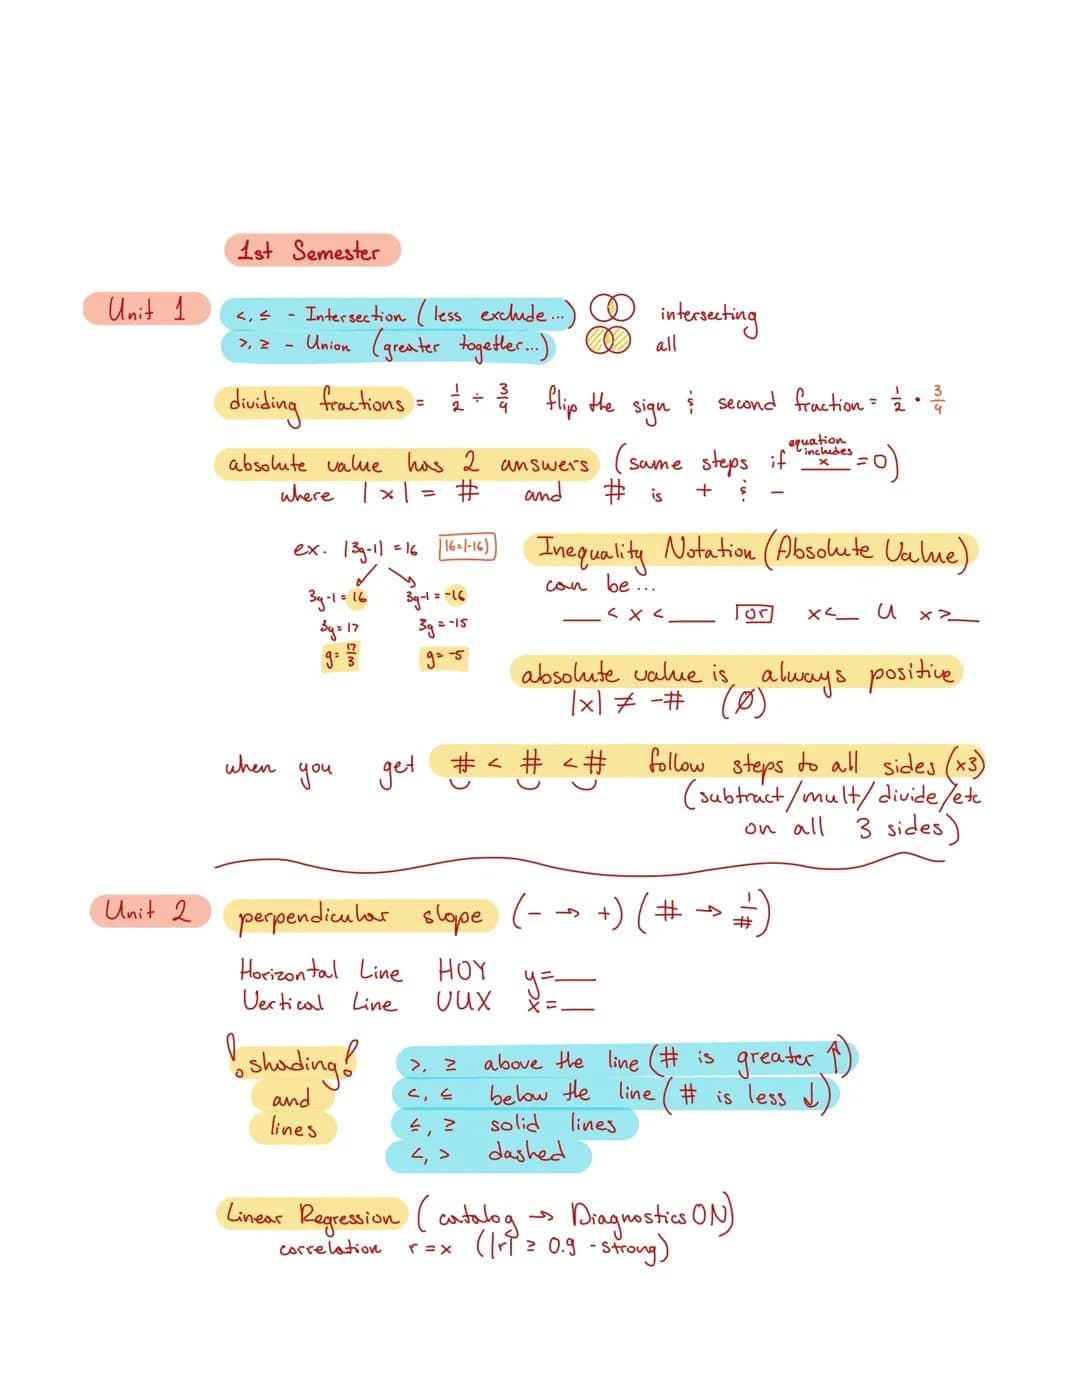 1st Semester
Unit 1
<, ≤ - Intersection (less exclude...) intersecting
>, ≥ - Union (greater together...) all
dividing fractions = 1/2 ÷ 3/4 flip the sign & second fraction = 1/2 • 3/4
absolute value has 2 answers (same steps if equation includes x = 0)
where |x| = # and # is + & -
ex. |3y-1| = 16 |16=|-16)
3y-1 = 16 3y-1 = -16
3y = 17 3y = -15
y = 17/3 y = -5
Inequality Notation (Absolute Value)
can be...
__ < x < __ or x<__ U x>__
absolute value is always positive
|x| ≠ -# (Ø)
when you get # < # < # follow steps to all sides (x3)
(subtract/mult/divide/etc
on all 3 sides)
Unit 2
perpendicular slope (- → +) (# → 1/#)
Horizontal Line HOY y=__
Vertical Line VUX x=__
! shading!
and
lines
>, ≥ above the line (# is greater ↑)
<, ≤ below the line (# is less ↓)
≤, ≥ solid lines
<, > dashed
Linear Regression (catalog → Diagnostics ON)
correlation r = x (|r| ≥ 0.9 - strong)